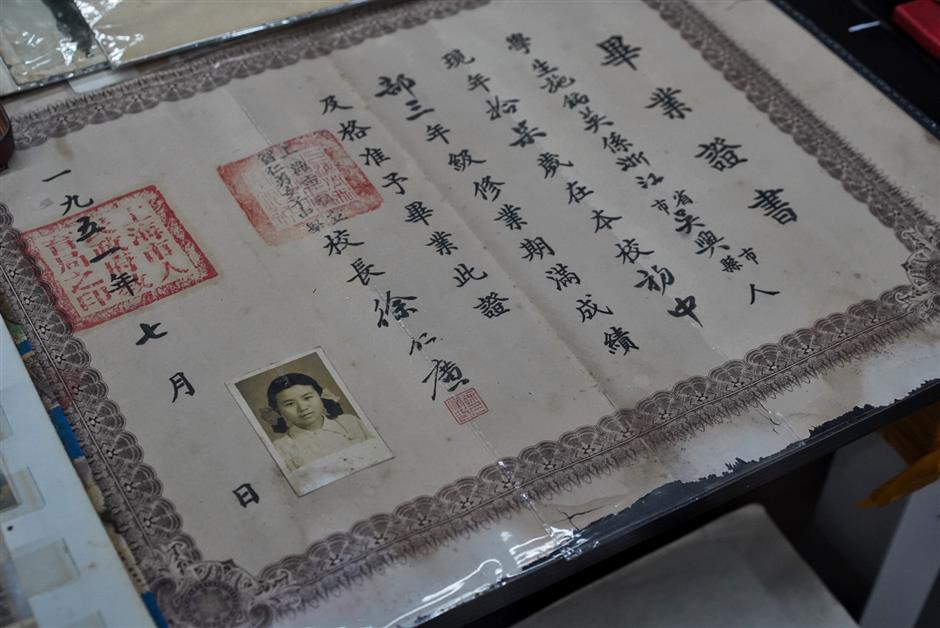 畢業證書
學生施銘英係浙江省市吳興市縣人
現年拾柒歲在本校初中
部三年級修業期滿成績
及格准予畢業此證
校長徐仁廣
一九五一年七月 日
上海市人民政府教育局之印